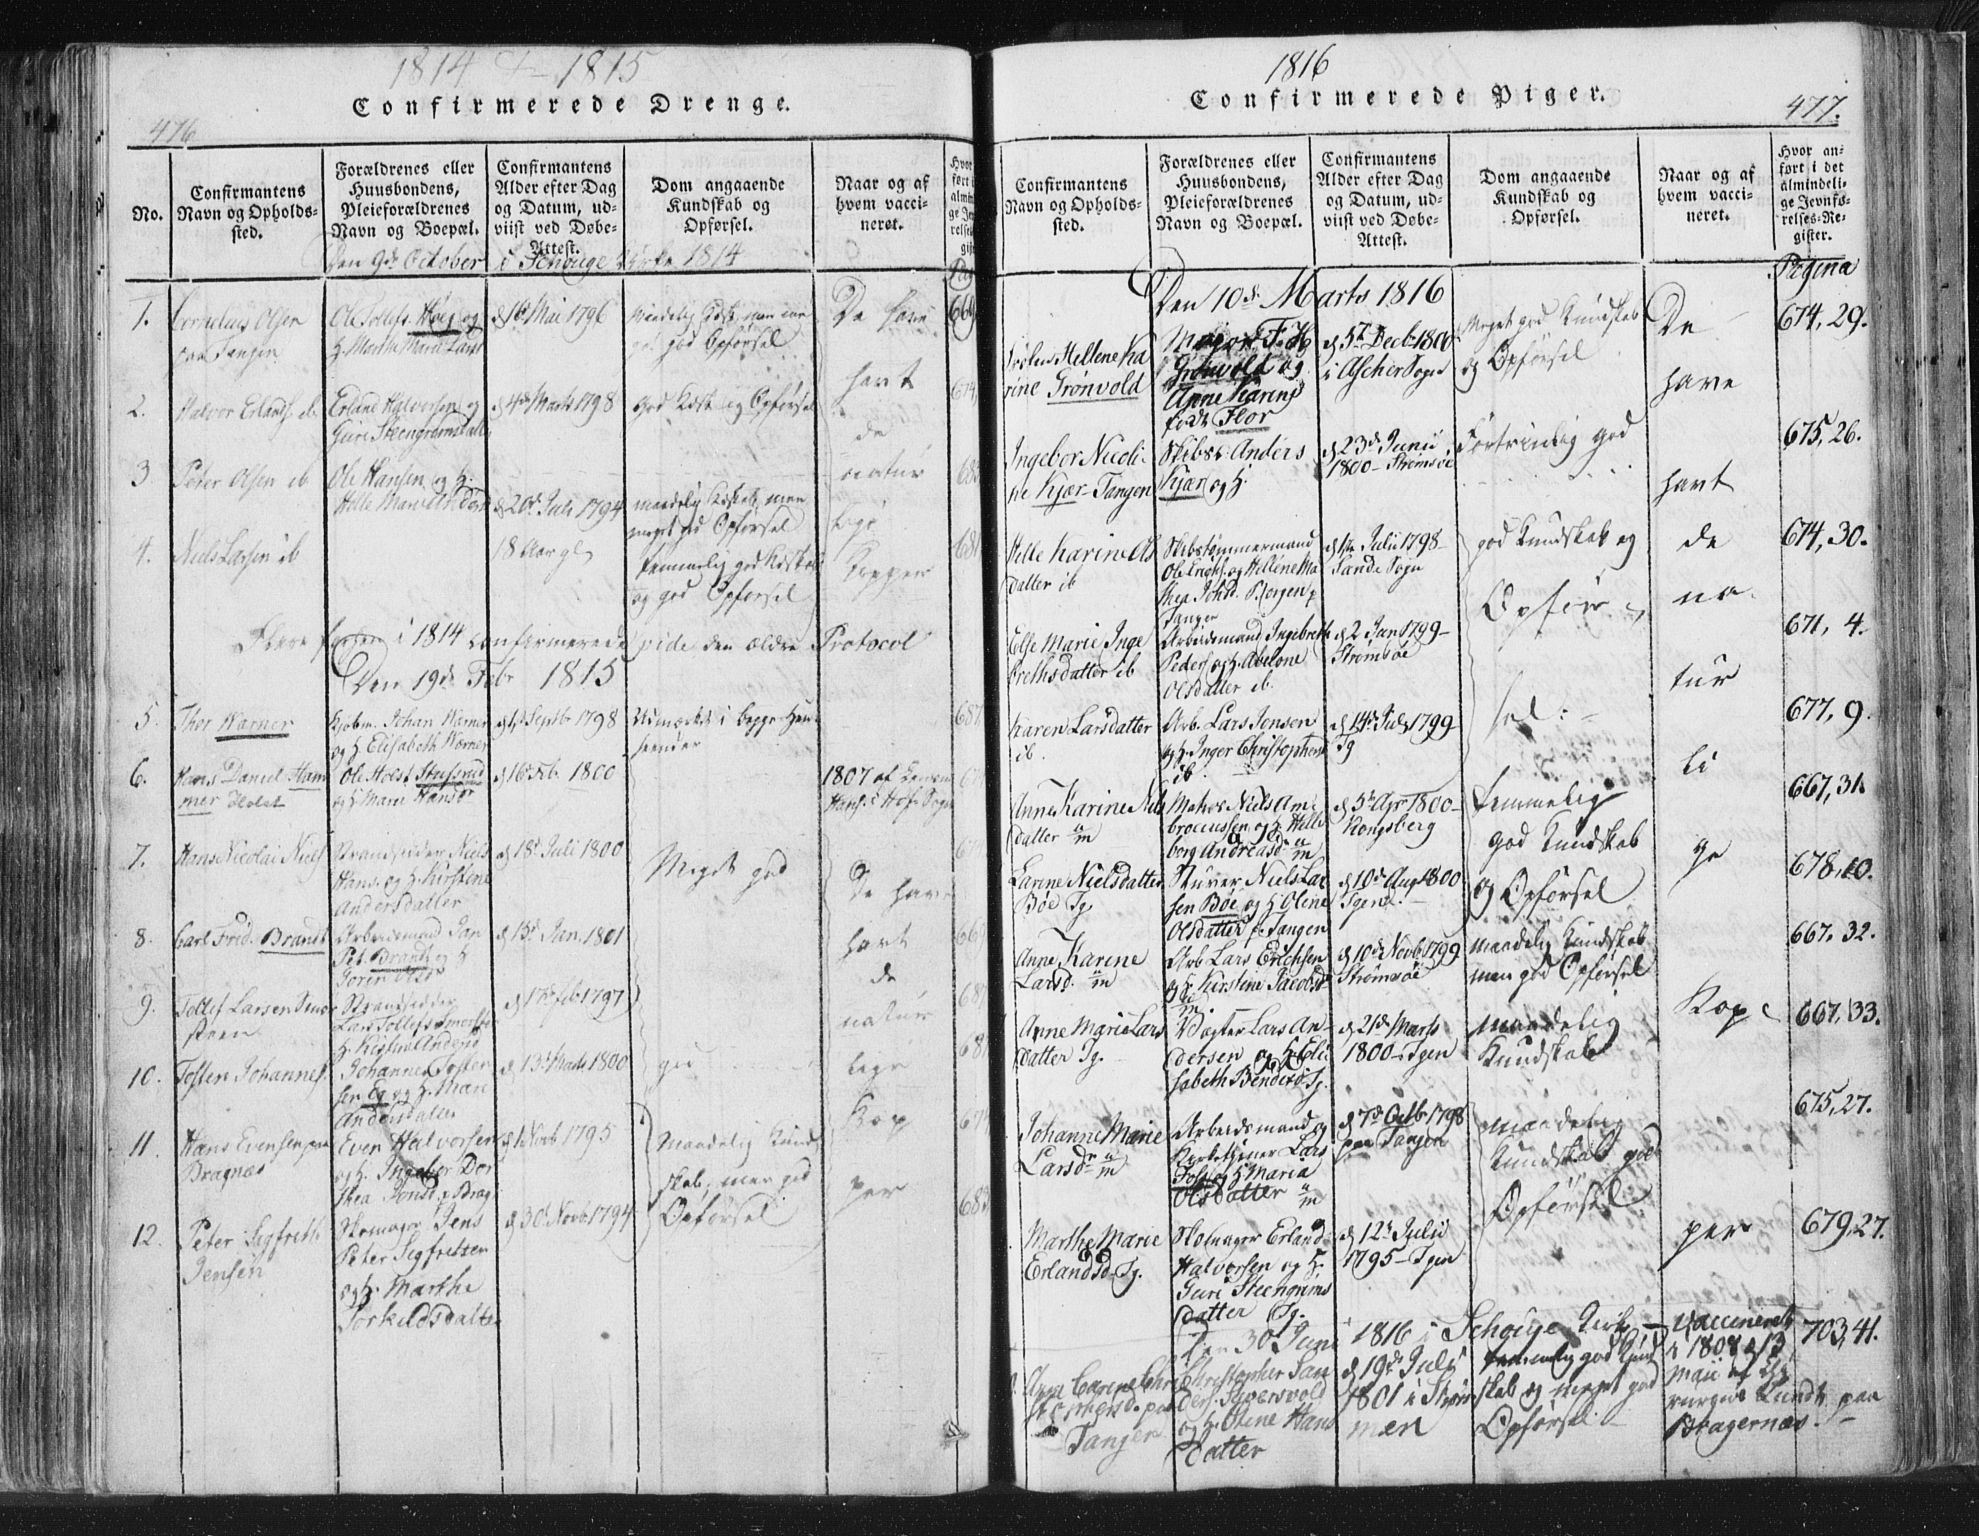 1814 & 1815
Confirmerede Drenge.
476
No.
Confirmantens
Navn og Opholds-
sted.
Forældrenes eller
Huusbondens,
Pleieforældrenes
Navn og Boepæl.
Confirmantens
Alder efter Dag
og Datum, ud-
viist ved Døbe-
Attest.
Dom angaaende
Kundskab og
Opførsel.
Naar og af
hvem vacci-
neret.
Den 9de October i Schouge Kirke 1814
1.
Cornelius Olsen
paa Tangen
Ole Tollefs. Høeg og
H. Marthe Marie Larsd
d 16 Mai 1796
god Opførsel
De have
havt
de
natur
lige
Kopper
2.
Halvor Erlands. ib
Erland Halvorsen og
Guri Steengrimsdatt
d 4de Marts 1798
god Kdsk. og Opførsel
3
Peter Olsen ib
Ole Hansen og H.
Helle Marie
d 20d. Juli 1794
maadelig Kdskab, men
meget god Opførsel
4.
Niels Larsen ib
18 Aar gl.
temmelig god Kdskab
og god Opførsel
Flere først i 1814 confirmerede vide den ældre Protocol
Den 19de Febr 1815
5.
Thor Warner
Kjøbm. Johan Warner
og H. Elisabeth Warner
d 1 Septb 1798
Udmærket i begge Hen-
seender
6.
Hans Daniel Ham
mer Holst
Ole Holst Stufsrud
og H. Maren Hansd
d 16 Feb. 1800
1807 af
7.
Hans Nicolai Niels
Strandsidder Niels
Hans. og H. Kirstene
Andersdatter
d 18d Juli 1800
Meget god
De have
havt
de
natur
lige
Kop
per
8.
Carl Frid. Brandt
Arbeidsmand Jan
Pet. Brandt og H
Joren Olsd
d 15d Jan. 1801
9.
Tollef Larsen Smør
steen
Strandsidder
Lars Tollefs Smørste
H. Kistine Andersd
d 17de feb 1797
10.
Tosten Johannes.
Johannes Tosten
sen Eg og H. Mari
Andersdatter
d 13d Marts 1800
god
11
Hans Evensen paa
Bragnæs
Even Halvorsen
og H. Ingebor Dor
thea Jonsd. p Brag.
d 1 Novb 1795
Maadelig Kund
skab, men god
Opførsel
12.
Peter Segfreth
Jensen
Skomager Jens
Peter Segfretsen
og H. Marthe
Torkeldsdatter
d 30d Novb. 1794
1816
Confirmerede Piger.
477.
Confirmantens
Navn og Opholds-
sted.
Forældrenes eller
Huusbondens,
Pleieforældrenes
Navn og Boepæl.
Confirmantens
Alder efter Dag
og Datum, ud-
viist ved Døbe-
Attest.
Dom angaaende
Kundskab og
Opførsel.
Naar og af
hvem vacci-
neret.
Hvor an-
ført i det
almindeli-
ge Jevnfø-
relses-Re-
gister.
Pagina
Den 10de Marts 1816
Hellene Ka
rine Grønvold
Major F. H
Grønvold og
Anne Karine
født Flor
d 5t Decb 1800
i Ascher Sogn
Meget god Kundskab
og Opførsel
De
have
havt
de
na
tur
li
ge
Kop
per
674, 29.
Ingebor Nicoli-
ne Kjær- Tangen
Skibsc. Anders
Kjær og H.
d 23d Junii
1800 - Strømsøe
Fortrinlig god
675, 26.
Helle Karine Ols
datter ib
Skibstømmermand
Ole Engebs. og Hellene Ma
thea Johsd. Bjørgen p
Tangen
d 1te Julii 1798 -
Sande Sogn
god Kundskab og
Opfør-
sel:
674, 30.
Else Marie Inge
brethsdatter ib
Arbeidsmand Ingebreth
Peders og H. Abelone
Olsdatter ib.
d 2 Jan 1799 -
Strømsøe
671, 4.
Karen Larsdatter
ib.
Arb. Lars Jonsen
og H. Inger Christophersd
ib
d 14de Juli 1799 -
Tg
677, 9.
Anne Karine Niels
datter
Matros Niels Am-
broeussen og H. Helle
borg Andreasd
d 5te Apr 1800 -
Kongsberg
temmelig
god Kundskab
og Opførsel
667, 31.
Karine Nielsdatter
Bøe Tg.
Sturer Niels Lar
sen Bøe og H Oline
Olsdatter p. Tangen
d 10de Aug 1800
Tgen
678, 10.
Anne Karene
Larsd.
Arb Lars Erichsen
og H. Kirstine Jacobsd
d 10de Novb. 1799
Strømsøe
maadelig Kundskab
men god Opførsel
667, 32.
Anne Marie Lars
datter Tg.
Vægter Lars An-
dersen og H. Eli
sabeth Bendersd Tg.
d 21de Marts
1800 - Tgen
maadelig
Kundskab
667, 33.
Johanne Marie
Larsd
Arbeidsmand og
Kirketjener Lars
Foss og H Maria
Olsdatter
d 7de Octb. 1798
paa Tangen
maadelig
Kundskab god
Opførsel
675, 27.
Marthe Marie
Erlandsd Tg.
Skomager Erland
Halvorsen og H.
Guri Steengrims
datter Tg.
d 12te Julii
1795 - Tgen
679, 27.
Den 30d Juni 1816 i Schouge Kirke
Anne Carine Chri
stophersd. paa
Tangen
Christopher San
ders. Sværsvold
og H. Stene Hans
datter
d 19de Juli
1801 i Strøm
men
temmelig god Kund
skab og meget god
Opførsel
Vaccineret
i 1808 d 13
Maii af Chi
rurgus Lund paa
Bragernæs.
703, 41.